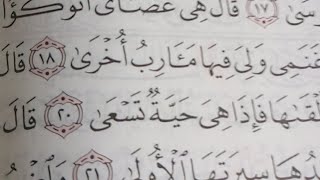 وسَىٰ ١٧ قَالَ هِىَ عَصَاىَ أَتَوَكَّؤُا۟
غَنَمِى وَلِىَ فِيهَا مَـَٔارِبُ أُخْرَىٰ ١٨ قَالَ
لْقَىٰهَا فَإِذَا هِىَ حَيَّةٌ تَسْعَىٰ ٢٠ قَالَ
يدُهَا سِيرَتَهَا ٱلْأُولَىٰ ٢١ وَٱضْمُمْ